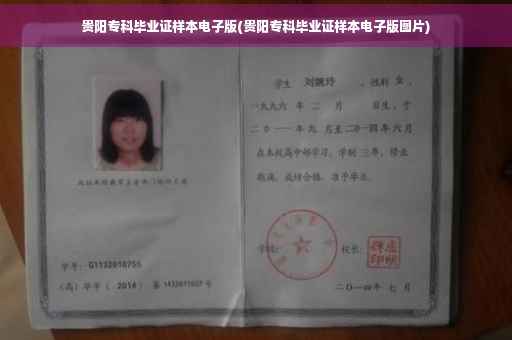 贵阳专科毕业证样本电子版(贵阳专科毕业证样本电子版图片)
学生 刘婉玲 ，性别 女 ，
一九九六 年 二 月 日生，于
二〇一一年 九 月至二〇一四年 六 月
在本校高中部学习，学制 三年，修业
期满，成绩合格，准予毕业。
学校： 校长：
学号：G1132010755
(高) 毕字 ( 2014 ) 第 1432011027 号
二〇一四年 七 月